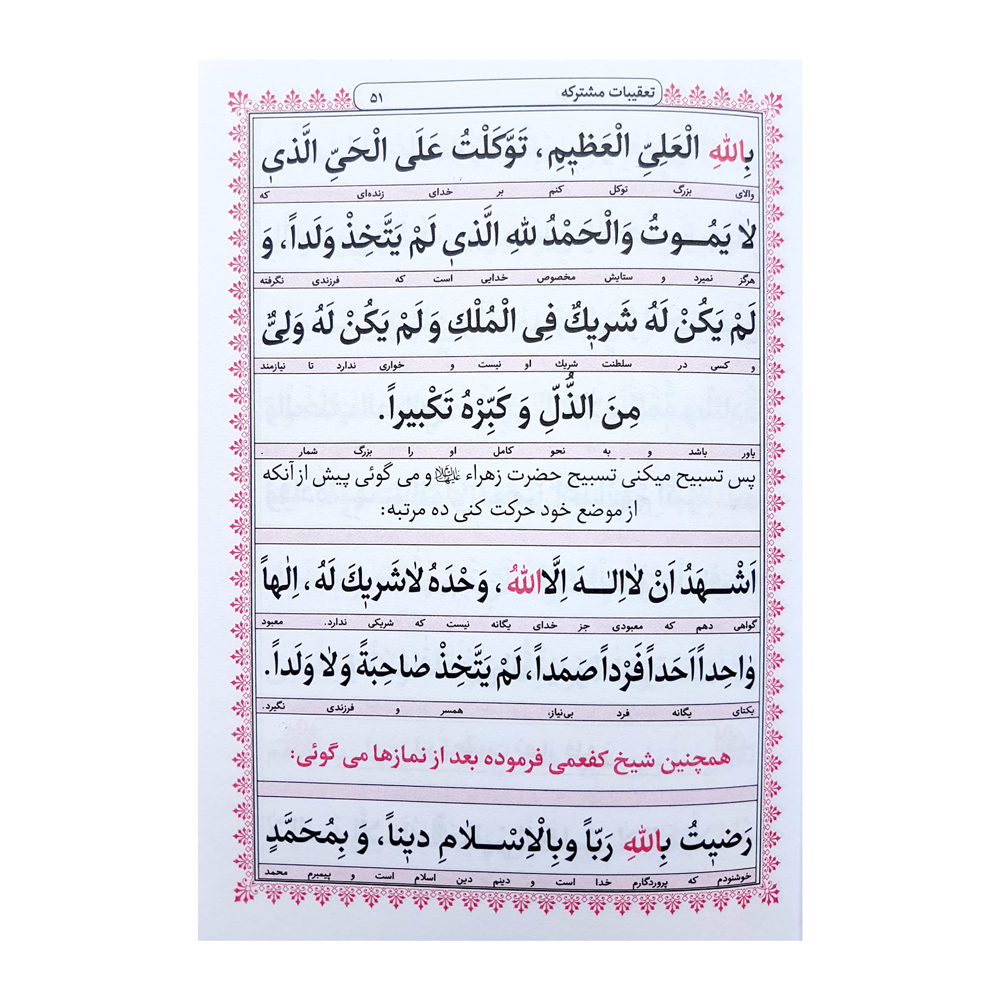 تعقیبات مشترکه ۵۱
بِاللّٰهِ الْعَلِيِّ الْعَظيمِ، تَوَكَّلْتُ عَلَى الْحَيِّ الَّذي
والای بزرگ توکل کنم بر خدای زنده‌ای که
لا يَمُـوتُ وَالْحَمْدُ لِلّٰهِ الَّذي لَمْ يَتَّخِذْ وَلَداً، وَ
هرگز نمیرد و ستایش مخصوص خدایی است که فرزندی نگرفته
لَمْ يَكُنْ لَهُ شَريكٌ فِي الْمُلْكِ وَ لَمْ يَكُنْ لَهُ وَلِيٌّ
و کسی در سلطنت شریك او نیست و خواری ندارد تا نیازمند
مِنَ الذُّلِّ وَ كَبِّرْهُ تَكْبيراً.
یاور باشد و به نحو کامل او را بزرگ شمار .
پس تسبیح میکنی تسبیح حضرت زهراء علیهاالسلام و می گوئی پیش از آنکه
از موضع خود حرکت کنی ده مرتبه:
اَشْـهَدُ اَنْ لااِلـٰهَ اِلَّااللّٰهُ، وَحْدَهُ لاشَريكَ لَهُ، اِلٰهاً
گواهی دهم که معبودی جز خدای یگانه نیست که شریکی ندارد. معبود
وٰاحِداً اَحَداً فَرْداً صَمَداً، لَمْ يَتَّخِذْ صٰاحِبَةً وَلا وَلَداً.
یکتای یگانه فرد بی‌نیاز، همسر و فرزندی نگیرد.
همچنین شیخ کفعمی فرموده بعد از نمازها می گوئی:
رَضيتُ بِاللّٰهِ رَبّاً وبِالْاِسْـلامِ ديناً، وَ بِمُحَمَّدٍ
خوشنودم که پروردگارم خدا است و دینم دین اسلام است و پیمبرم محمد